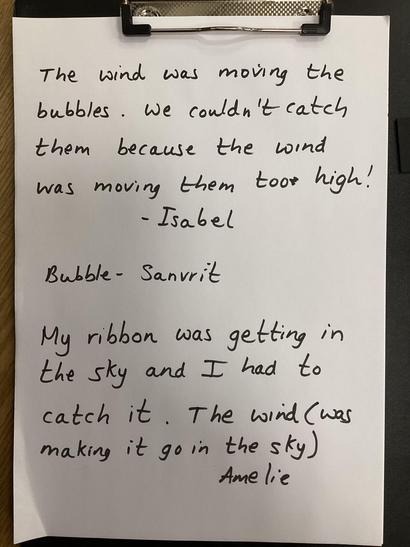 The wind was moving the
bubbles. We couldn't catch
them because the wind
was moving them too high!
- Isabel
Bubble- Sanvrit
My ribbon was getting in
the sky and I had to
catch it. The wind (was
making it go in the sky)
Amelie